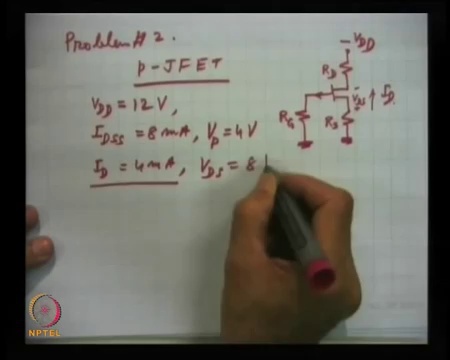 Problem # 2.
P-JFET
V_DD = 12 V,
I_DSS = 8 mA, V_P = 4 V
I_D = 4 mA, V_DS = 8
-V_DD
R_D
V_DS
I_D
R_G
R_S
NPTEL